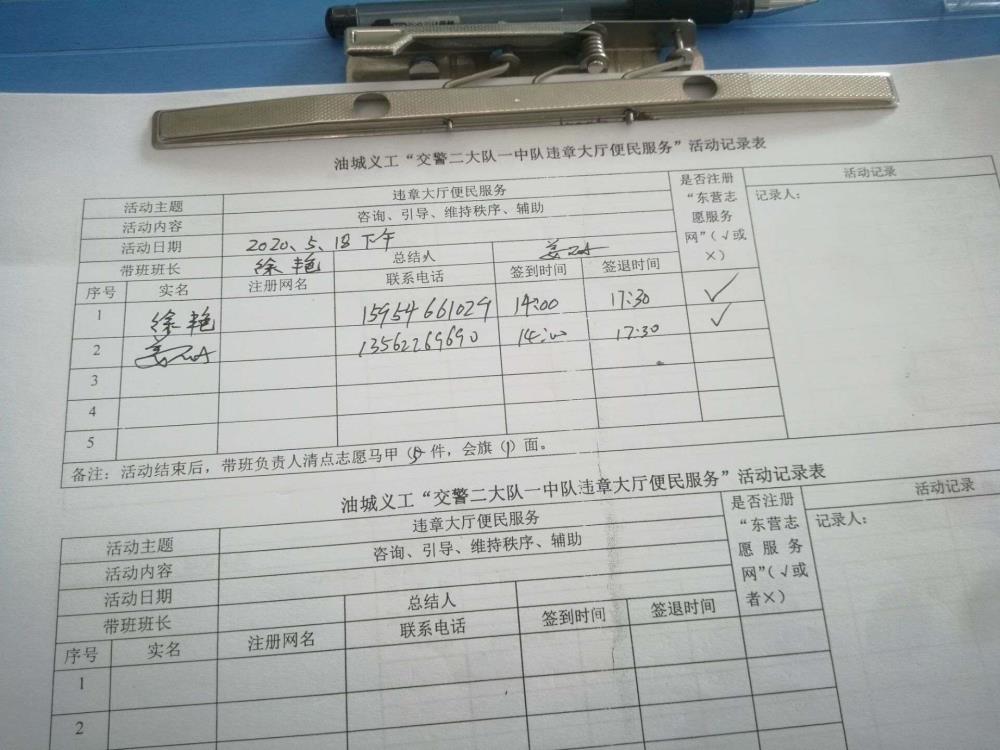 油城义工“交警二大队一中队违章大厅便民服务”活动记录表
活动主题 违章大厅便民服务 是否注册“东营志愿服务网”(√或×) 活动记录
活动内容 咨询、引导、维持秩序、辅助 记录人:
活动日期 2020、5、18 下午
带班班长 徐艳 总结人 姜
序号 实名 注册网名 联系电话 签到时间 签退时间
1 徐艳 15954661029 14:00 17:30 √
2 姜 13562269690 14:00 17:30 √
3
4
5
备注:活动结束后,带班负责人清点志愿马甲(5)件,会旗(1)面。
油城义工“交警二大队一中队违章大厅便民服务”活动记录表
活动主题 违章大厅便民服务 是否注册“东营志愿服务网”(√或者×) 活动记录
活动内容 咨询、引导、维持秩序、辅助 记录人:
活动日期
带班班长 总结人
序号 实名 注册网名 联系电话 签到时间 签退时间
1
2